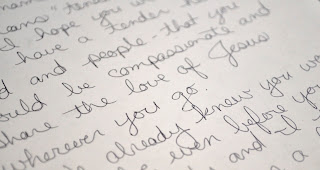 means "tender
I hope you w
have a tender h
d and people - that you
ould be compassionate and
share the love of Jesus
wherever you go.
e already knew you wo
e even before you
y and I
a